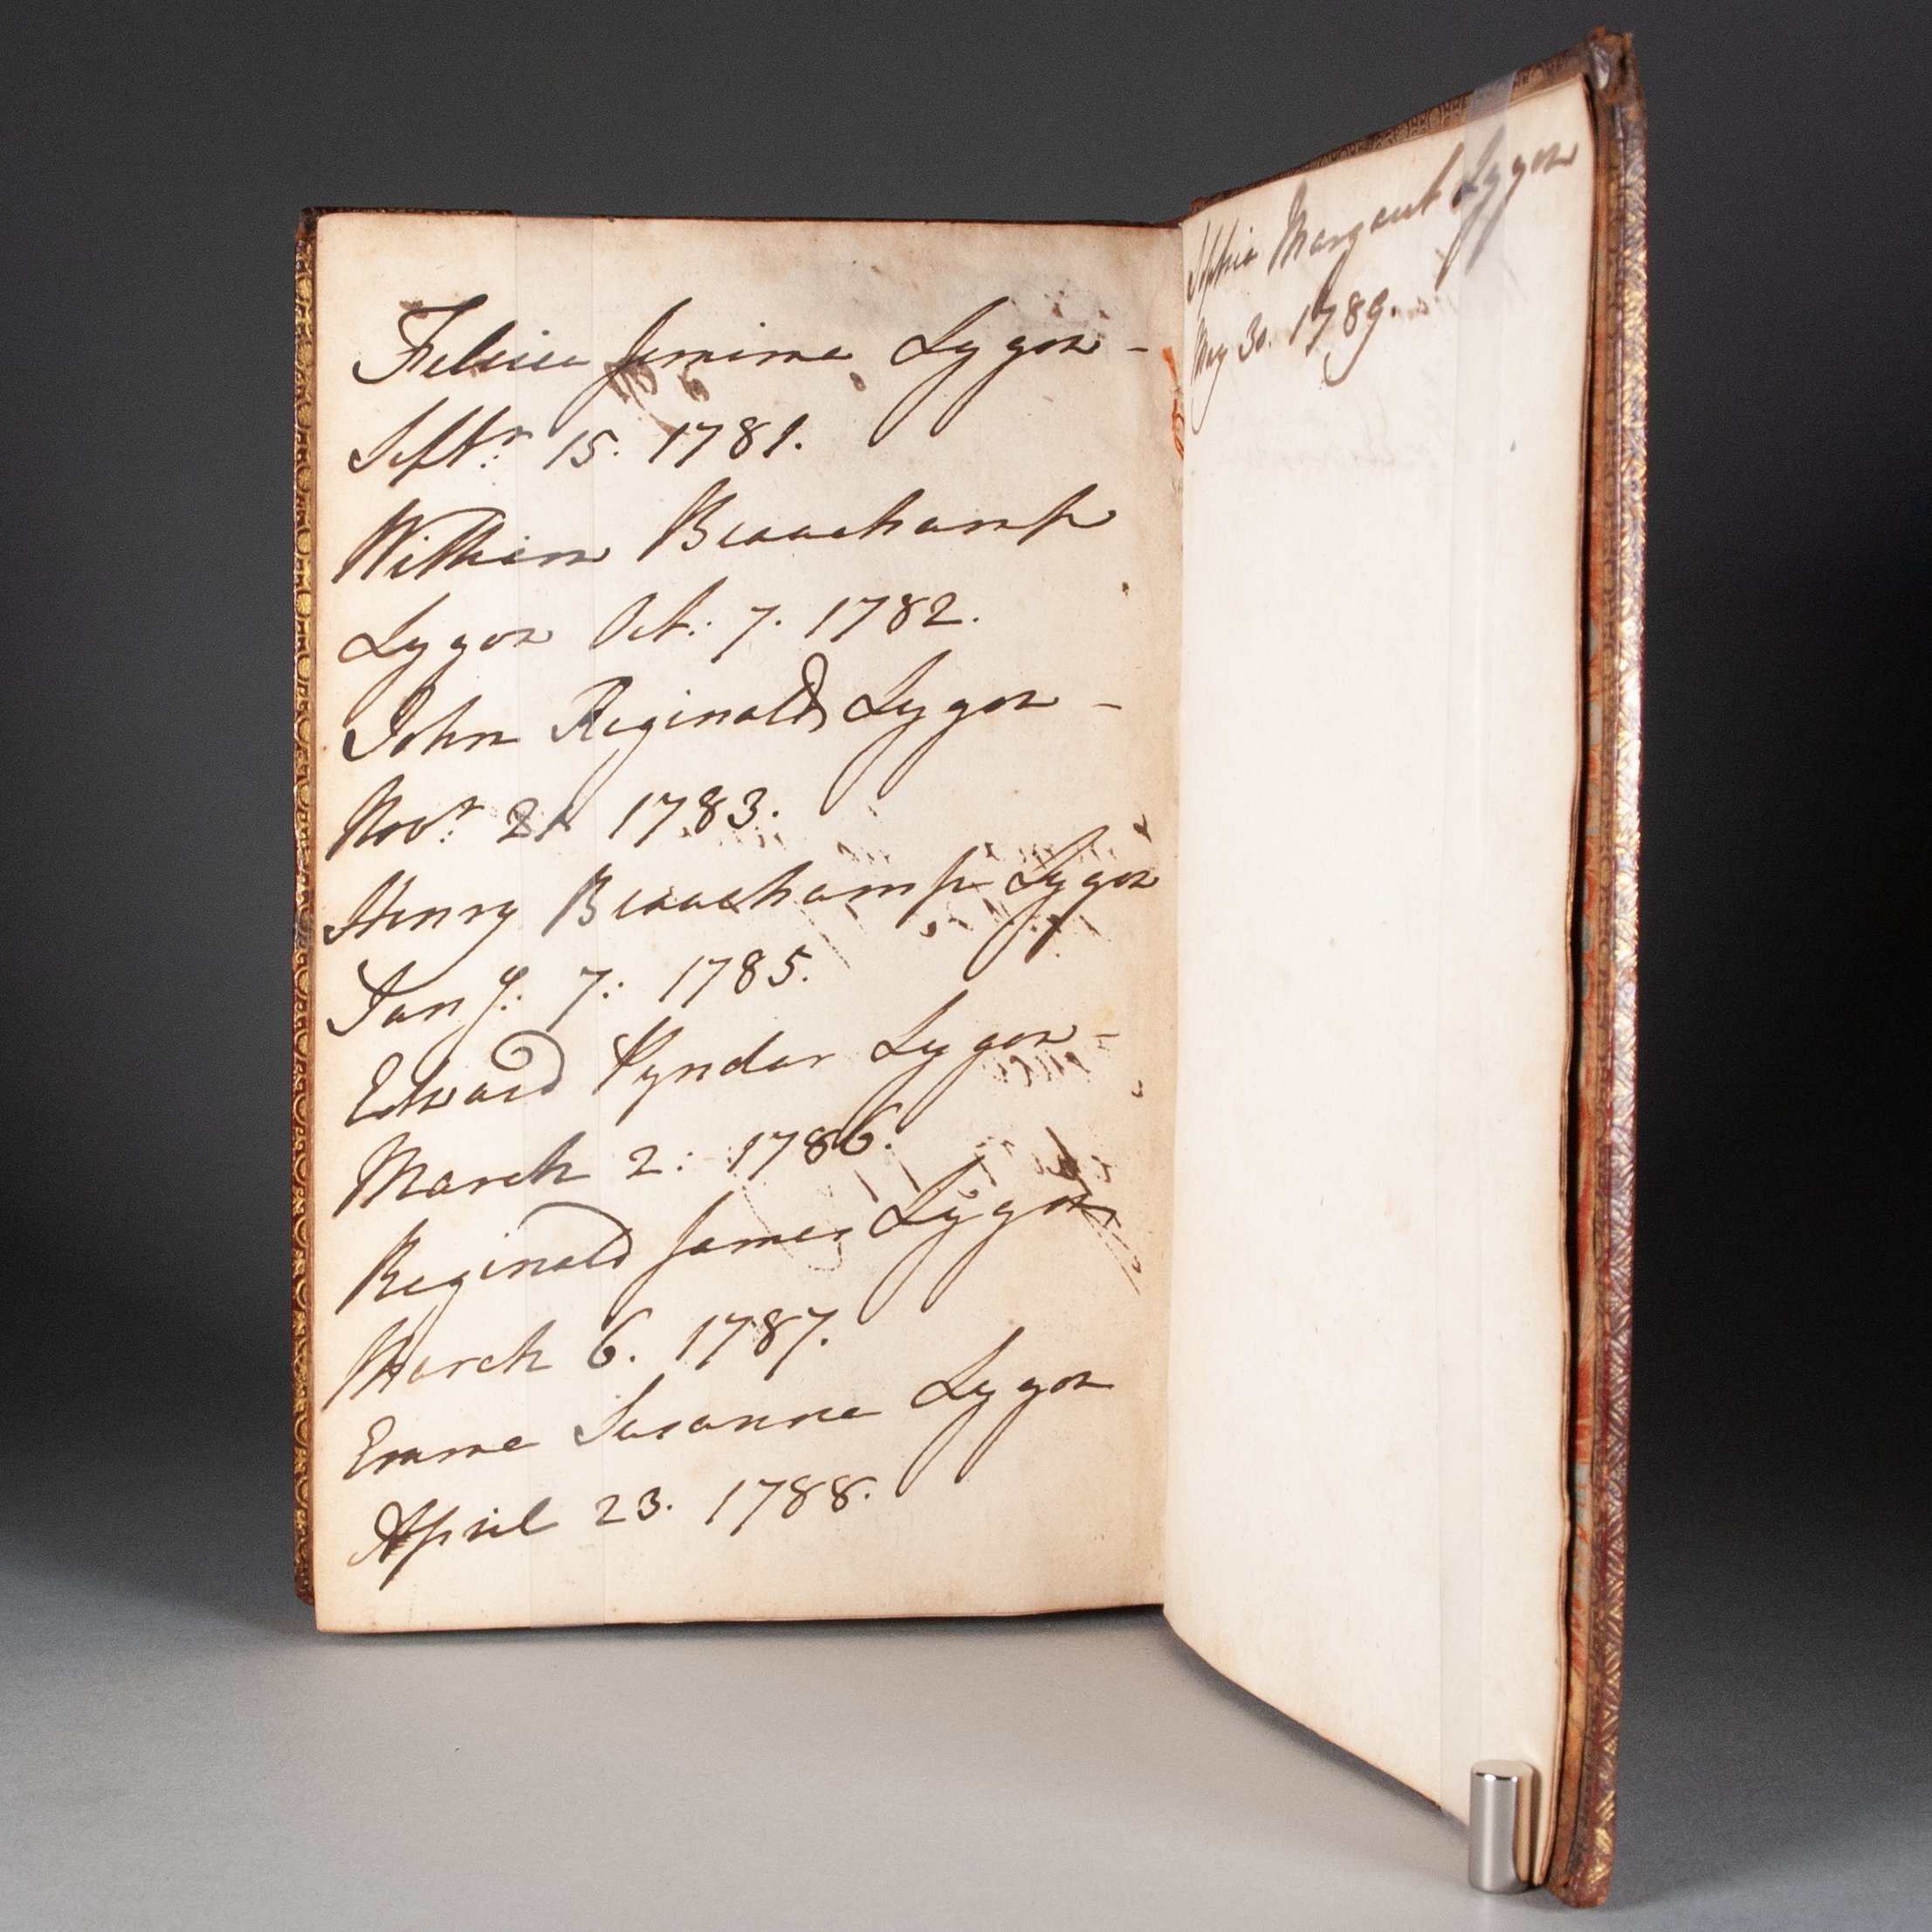 Felicia Jemima Lygon -
Septr. 15. 1781.
William Beauchamp
Lygon Oct: 7. 1782.
John Reginald Lygon -
Novr. 21 1783.
Henry Beauchamp Lygon
Jany: 7: 1785.
Edward Pyndar Lygon -
March 2: 1786.
Reginald James Lygon
March 6. 1787.
Emma Susanna Lygon
April 23. 1788.
Sophia Margaret Lygon
May 30. 1789.